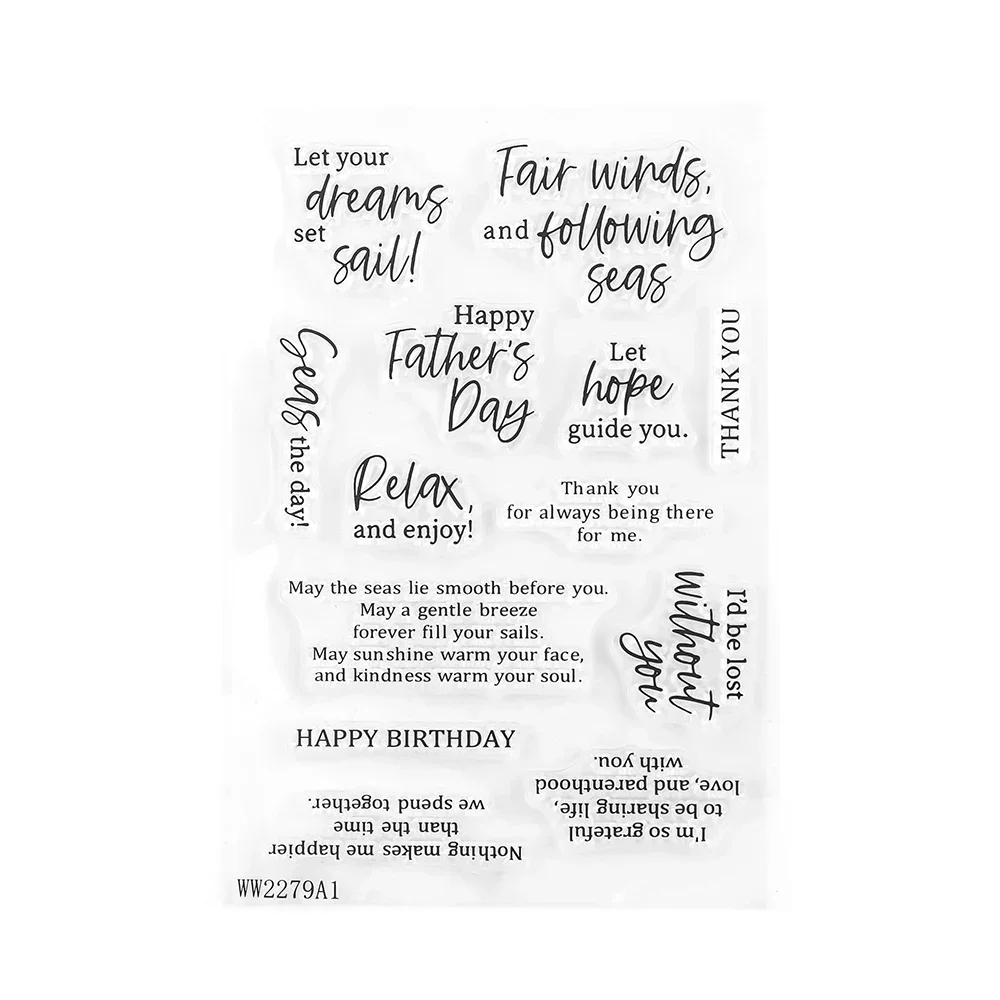 Let your
dreams
set
sail!
Fair winds,
and following
seas
Happy
Father's
Day
Let
hope
guide you.
THANK YOU
Seas the day!
Relax,
and enjoy!
Thank you
for always being there
for me.
May the seas lie smooth before you.
May a gentle breeze
forever fill your sails.
May sunshine warm your face,
and kindness warm your soul.
I'd be lost
without
you
HAPPY BIRTHDAY
I'm so grateful
to be sharing life,
love, and parenthood
with you.
Nothing makes me happier
than the time
we spend together.
WW2279A1